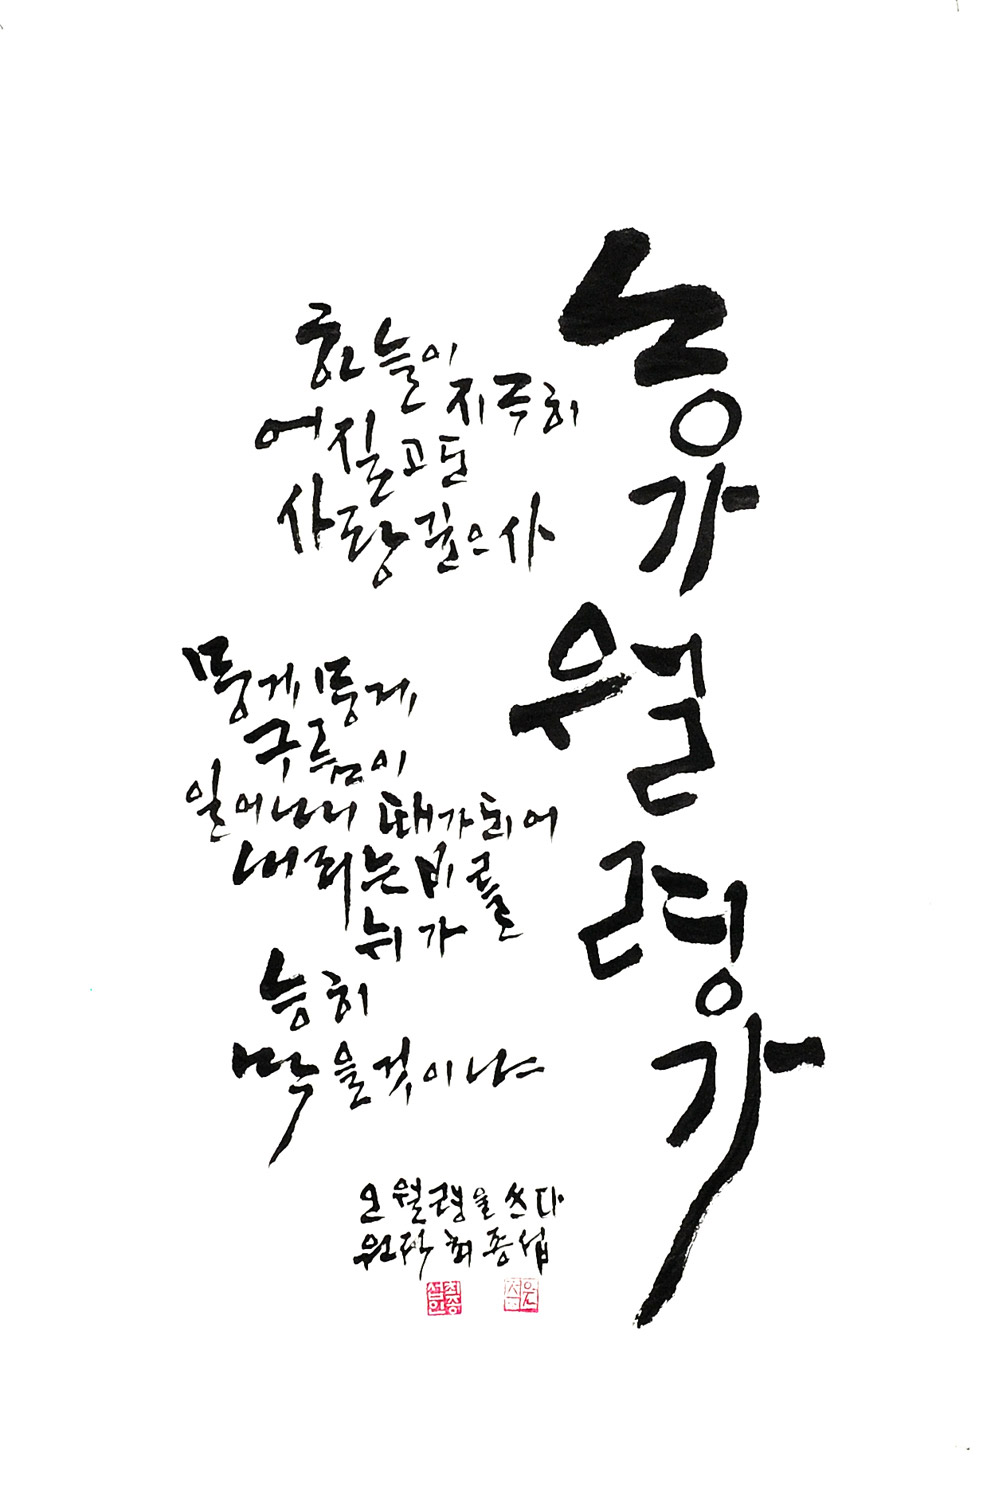 농가월령가
하늘이
지극히
어질고도
사랑깊으사
뭉게뭉게
구름이
일어나니 때가되어
내리는비를
뉘가
능히
막을것이냐
오월령을 쓰다
최종섭
최종섭인